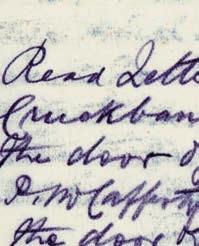 Read Lette
Cruckban
the door o
P. McCafferty
the door o